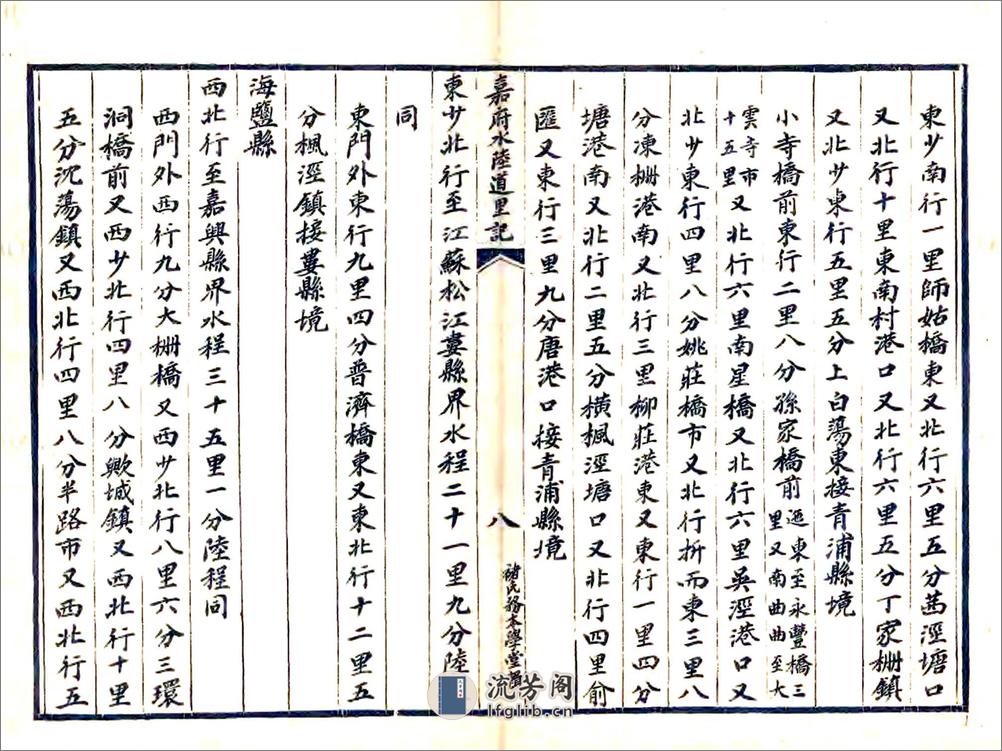 東少南行一里師姑橋東又北行六里五分茜涇塘口
又北行十里東南村港口又北行六里五分丁家柵鎮
又北少東行五里五分上白蕩東接青浦縣境
小寺橋前東行二里八分孫家橋前迤東至永豐橋三里又南曲曲至大
雲寺市十五里又北行六里南星橋又北行六里吳涇港口又
北少東行四里八分姚莊橋市又北行折而東三里八
分凍柵港南又北行三里柳莊港東又東行一里四分
塘港南又北行二里五分橫楓涇塘口又北行四里俞
匯又東行三里九分唐港口接青浦縣境
嘉府水陸道里記
八
褚民務本學堂
東少北行至江蘇松江婁縣界水程二十一里九分陸
同
東門外東行九里四分普濟橋東又東北行十二里五
分楓涇鎮接婁縣境
海鹽縣
西北行至嘉興縣界水程三十五里一分陸程同
西門外西行九分大柵橋又西少北行八里六分三環
洞橋前又西少北行四里八分歟城鎮又西北行十里
五分沈蕩鎮又西北行四里八分半路市又西北行五
流芳阁
lfglib.cn